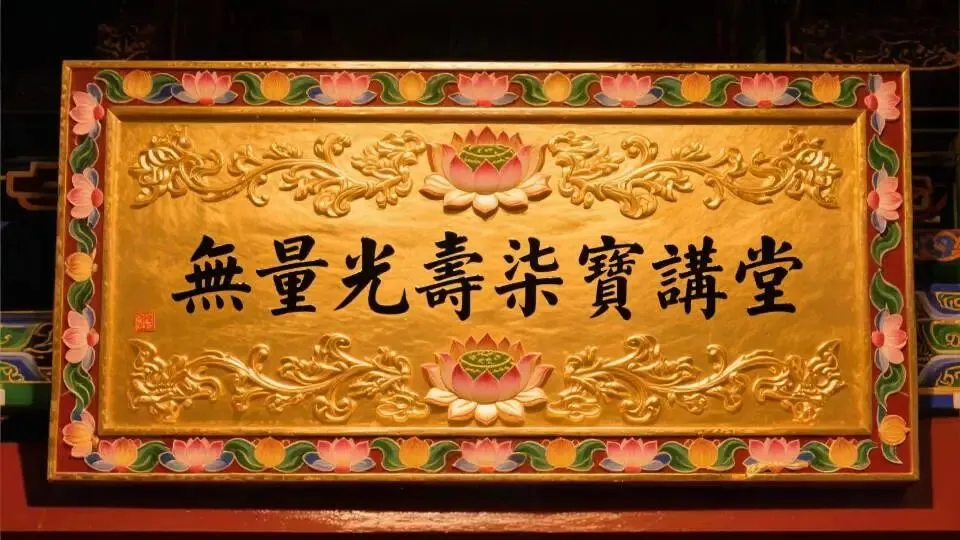 無量光壽柒寶講堂